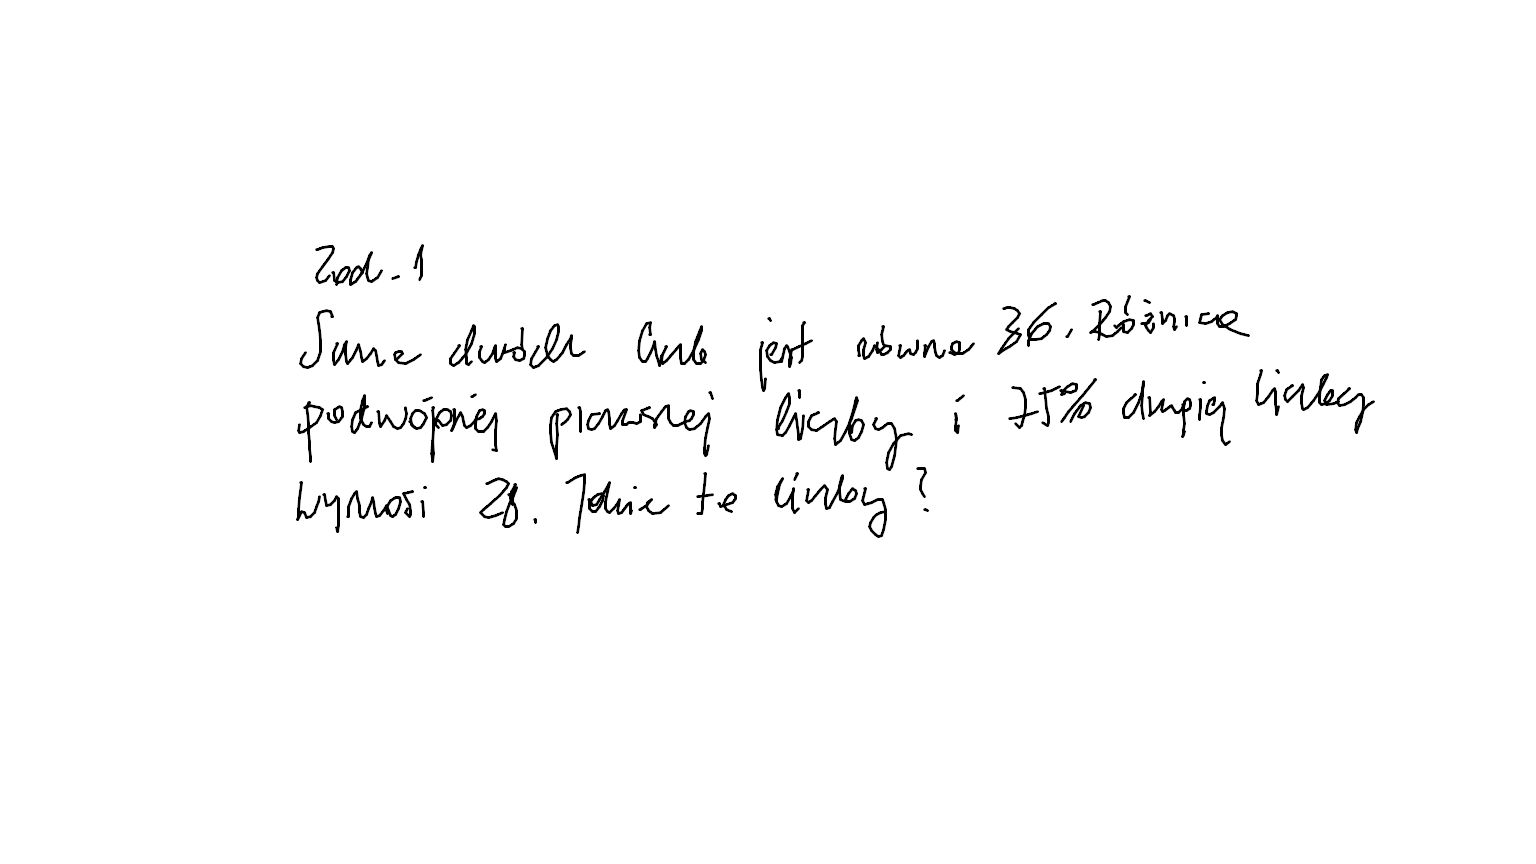 Zad. 1
Suma dwóch liczb jest równa 36. Różnica
podwójnej pierwszej liczby i 75% drugiej liczby
wynosi 28. Jakie to liczby?